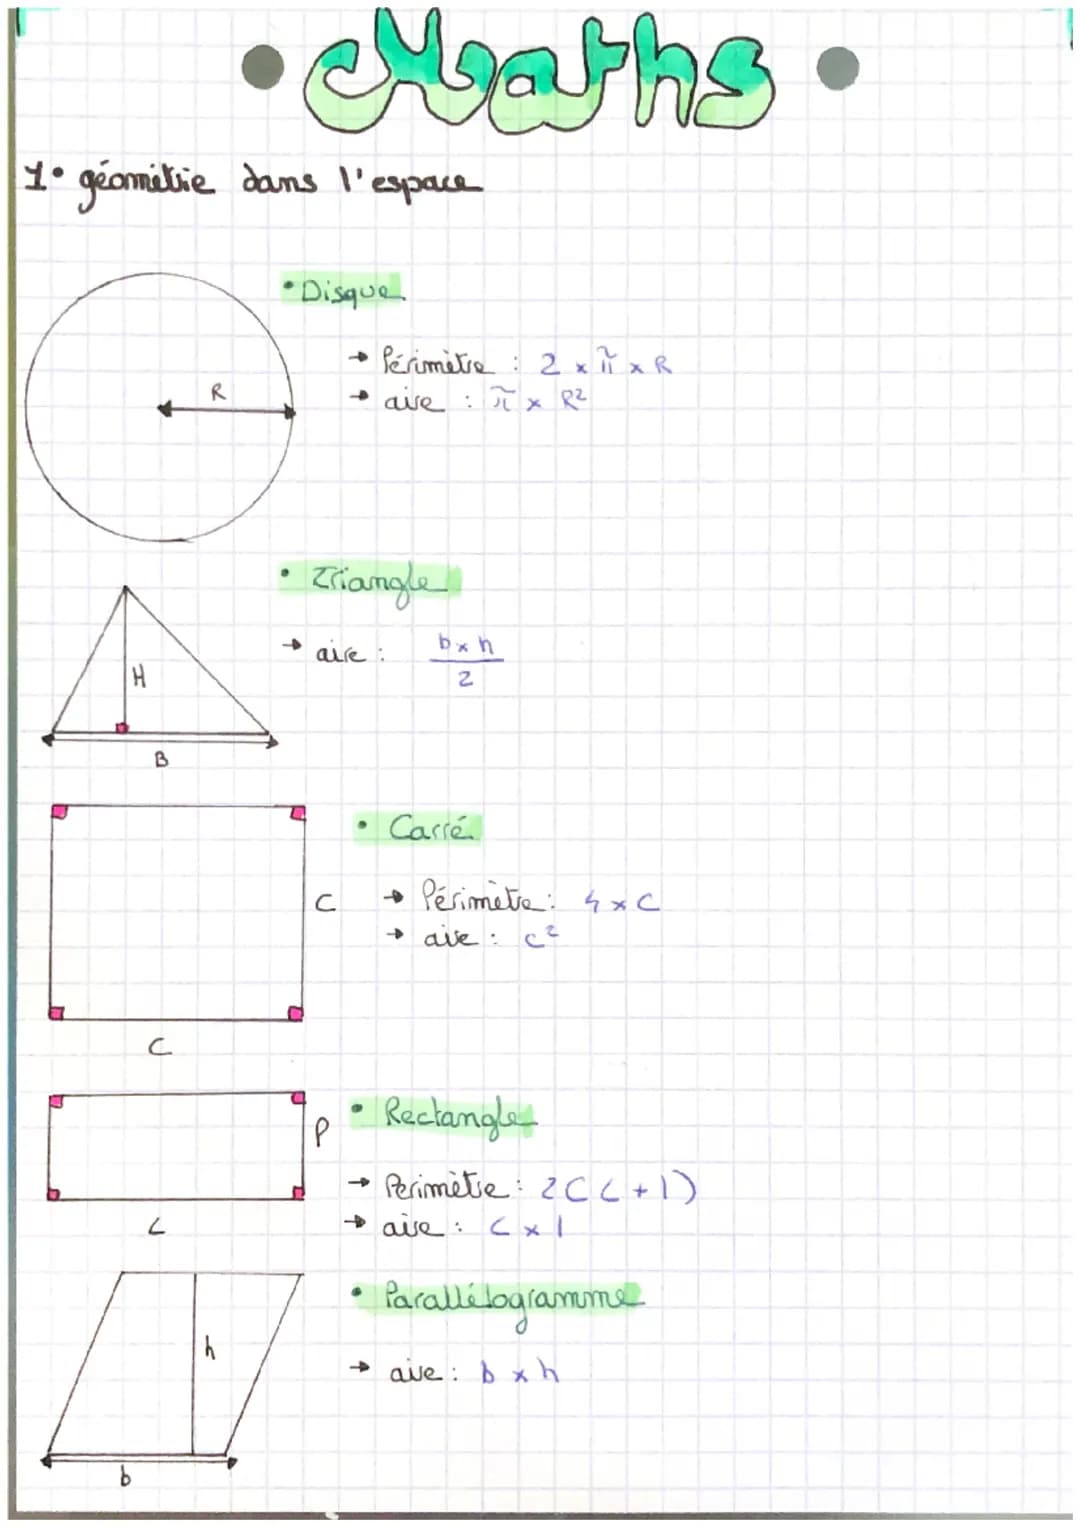 Maths
1° géométrie dans l'espace
• Disque
→ Périmètre : 2 × π × R
→ aire : π × R²
R
• Triangle
→ aire : b × h / 2
H
B
• Carré
→ Périmètre : 4 × C
→ aire : c²
C
C
• Rectangle
→ Perimètre : 2(L + l)
→ aire : L × l
P
L
• Parallélogramme
→ aire : b × h
h
b